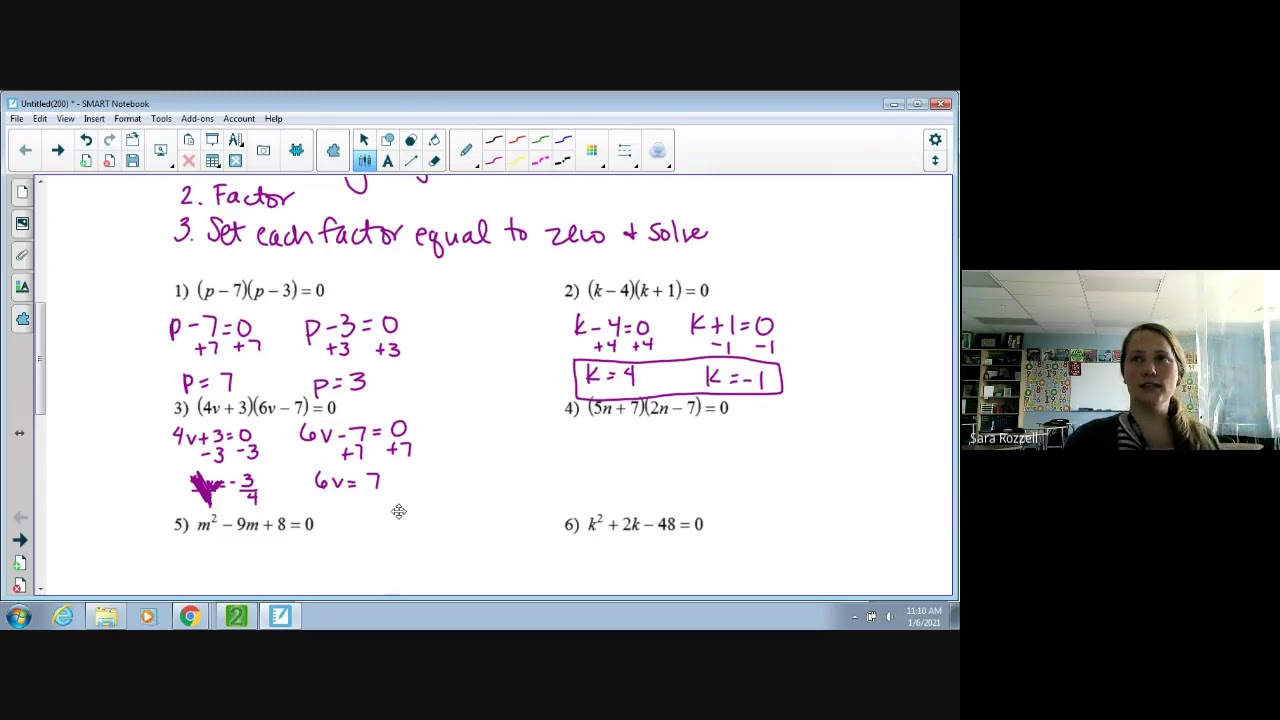 Untitled(200) * - SMART Notebook
File Edit View Insert Format Tools Add-ons Account Help
2. Factor
3. Set each factor equal to zero + solve
1) (p − 7)(p − 3) = 0
p − 7 = 0 p − 3 = 0
+7 +7 +3 +3
p = 7 p = 3
2) (k − 4)(k + 1) = 0
k − 4 = 0 k + 1 = 0
+4 +4 −1 −1
k = 4 k = −1
3) (4v + 3)(6v − 7) = 0
4v + 3 = 0 6v − 7 = 0
−3 −3 +7 +7
= −3/4 6v = 7
4) (5n + 7)(2n − 7) = 0
5) m² − 9m + 8 = 0
6) k² + 2k − 48 = 0
Sara Rozzell
11:10 AM
1/6/2021